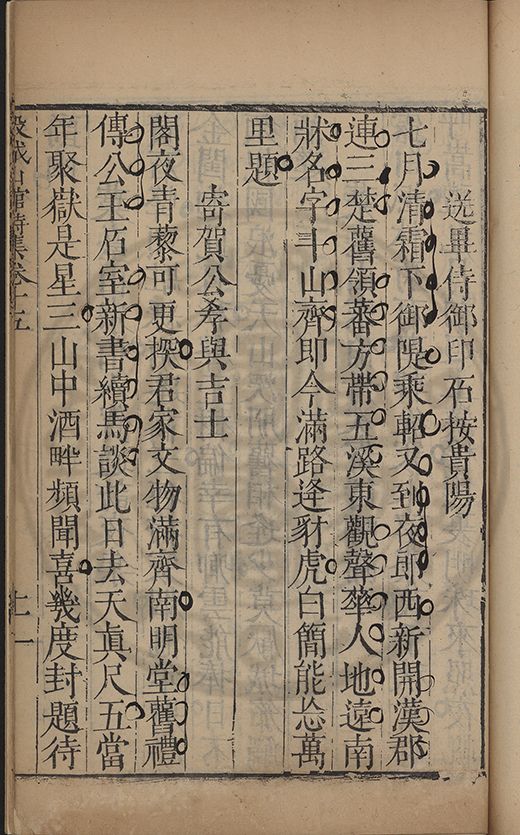 送畢侍御印石按貴陽
七月清霜下御隄乘軺又到夜郎西新開漢郡
連三楚舊領蕃方帶五溪東觀聲華人地遠南
牀名字斗山齊即今滿路逢豺虎白簡能忘萬
里題
寄賀公孝與吉士
閣夜青藜可更撰君家文物滿齊南明堂舊禮
傳公王石室新書續馬談此日去天真尺五當
年聚嶽是星三山中酒畔頻聞喜幾度封題待
穀城山館詩集卷十五
十一